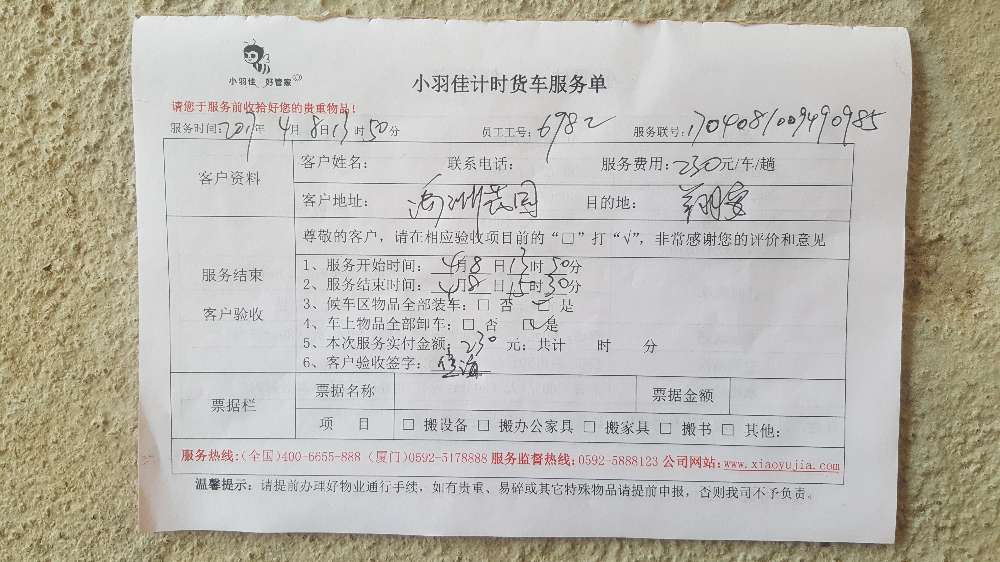 小羽佳 好管家
小羽佳计时货车服务单
请您于服务前收拾好您的贵重物品！
服务时间：2017年 4月 8日13时50分 员工工号：6982 服务联号：1704081009490985
客户资料
客户姓名： 联系电话： 服务费用：230元/车/趟
客户地址： 花园 目的地： 翔安
服务结束
客户验收
尊敬的客户，请在相应验收项目前的“□”打“√”，非常感谢您的评价和意见
1、服务开始时间：4月8日13时50分
2、服务结束时间：4月8日15时30分
3、候车区物品全部装车：□ 否 ☑ 是
4、车上物品全部卸车：□ 否 ☑是
5、本次服务实付金额：230 元；共计 时 分
6、客户验收签字：
票据栏
票据名称 票据金额
项 目 □ 搬设备 □ 搬办公家具 □ 搬家具 □ 搬书 □ 其他：
服务热线：(全国)400-6655-888 (厦门)0592-5178888 服务监督热线：0592-5888123 公司网站：www.xiaoyujia.com
温馨提示：请提前办理好物业通行手续，如有贵重、易碎或其它特殊物品请提前申报，否则我司不予负责。